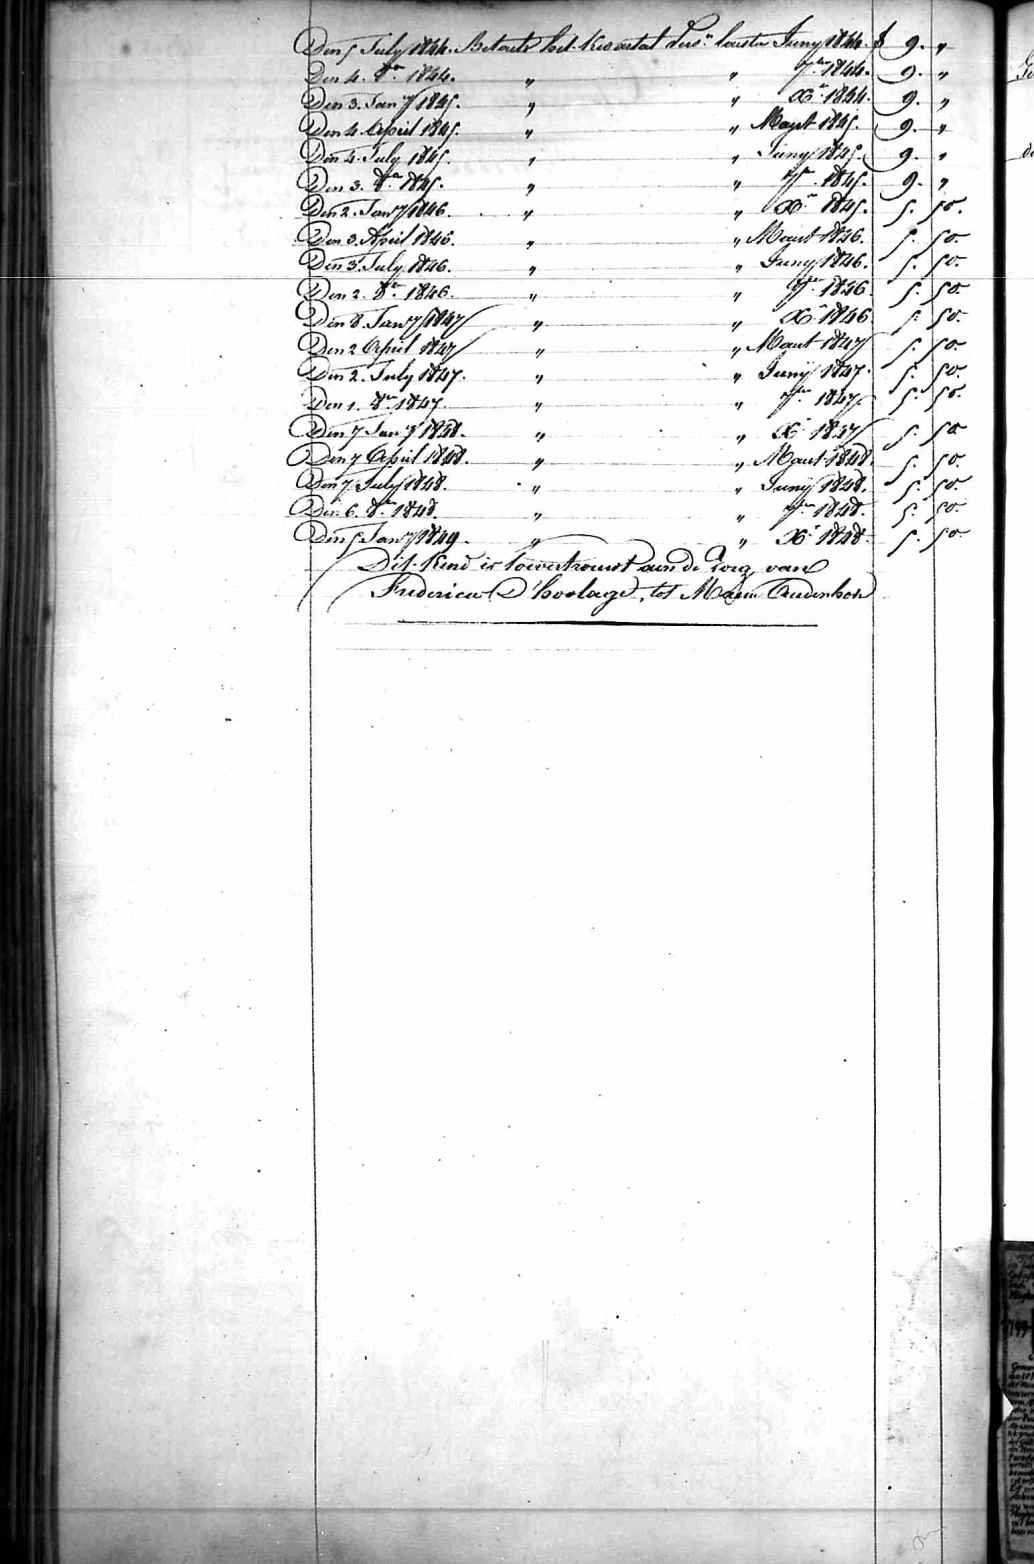 Den 5 July 1844. Betaelt het Kwartal vers.n laeste Juny 1844. f 9. "
Den 4. 8.er 1844. " " 7.er 1844. 9. "
Den 3. Jan.y 1845. " " X.r 1844. 9. "
Den 4. April 1845. " " Maart 1845. 9. "
Den 4. July 1845. " " Juny 1845. 9. "
Den 3. 8.er 1845. " " 7.er 1845. 9. "
Den 2. Jan.y 1846. " " X.r 1845. 5. 50.
Den 3. April 1846. " " Maart 1846. 5. 50.
Den 3. July 1846. " " Juny 1846. 5. 50.
Den 2. 8.er 1846. " " 7.er 1846 5. 50.
Den 8. Jan.y 1847 " " X.r 1846 5. 50.
Den 2 April 1847 " " Maart 1847 5. 50.
Den 2. July 1847. " " Juny 1847. 5. 50.
Den 1. 8.er 1847. " " 7.er 1847. 5. 50.
Den 7 Jan.y 1848. " " X.r 1847 5. 50
Den 7 April 1848. " " Maart 1848. 5. 50.
Den 7. July 1848. " " Juny 1848. 5. 50.
Den 6. 8.er 1848. " " 7.er 1848. 5. 50.
Den 5 Jan.y 1849. " " X.r 1848. 5. 50.
Dit Kind is toevertrouwt aen de zorg van
Frederica D'hoolage, tot Maria Audenhove